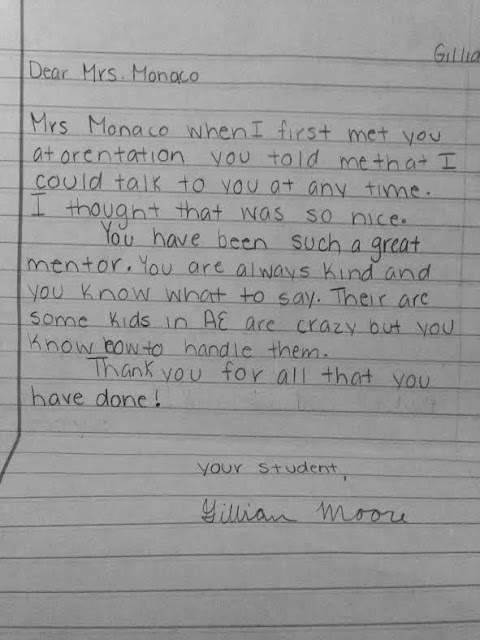 Gillia
Dear Mrs. Monaco
Mrs Monaco when I first met you
at orentation you told me that I
could talk to you at any time.
I thought that was so nice.
You have been such a great
mentor. You are always kind and
you know what to say. Their are
some kids in AE are crazy but you
know how to handle them.
Thank you for all that you
have done!
your student,
Gillian Moore